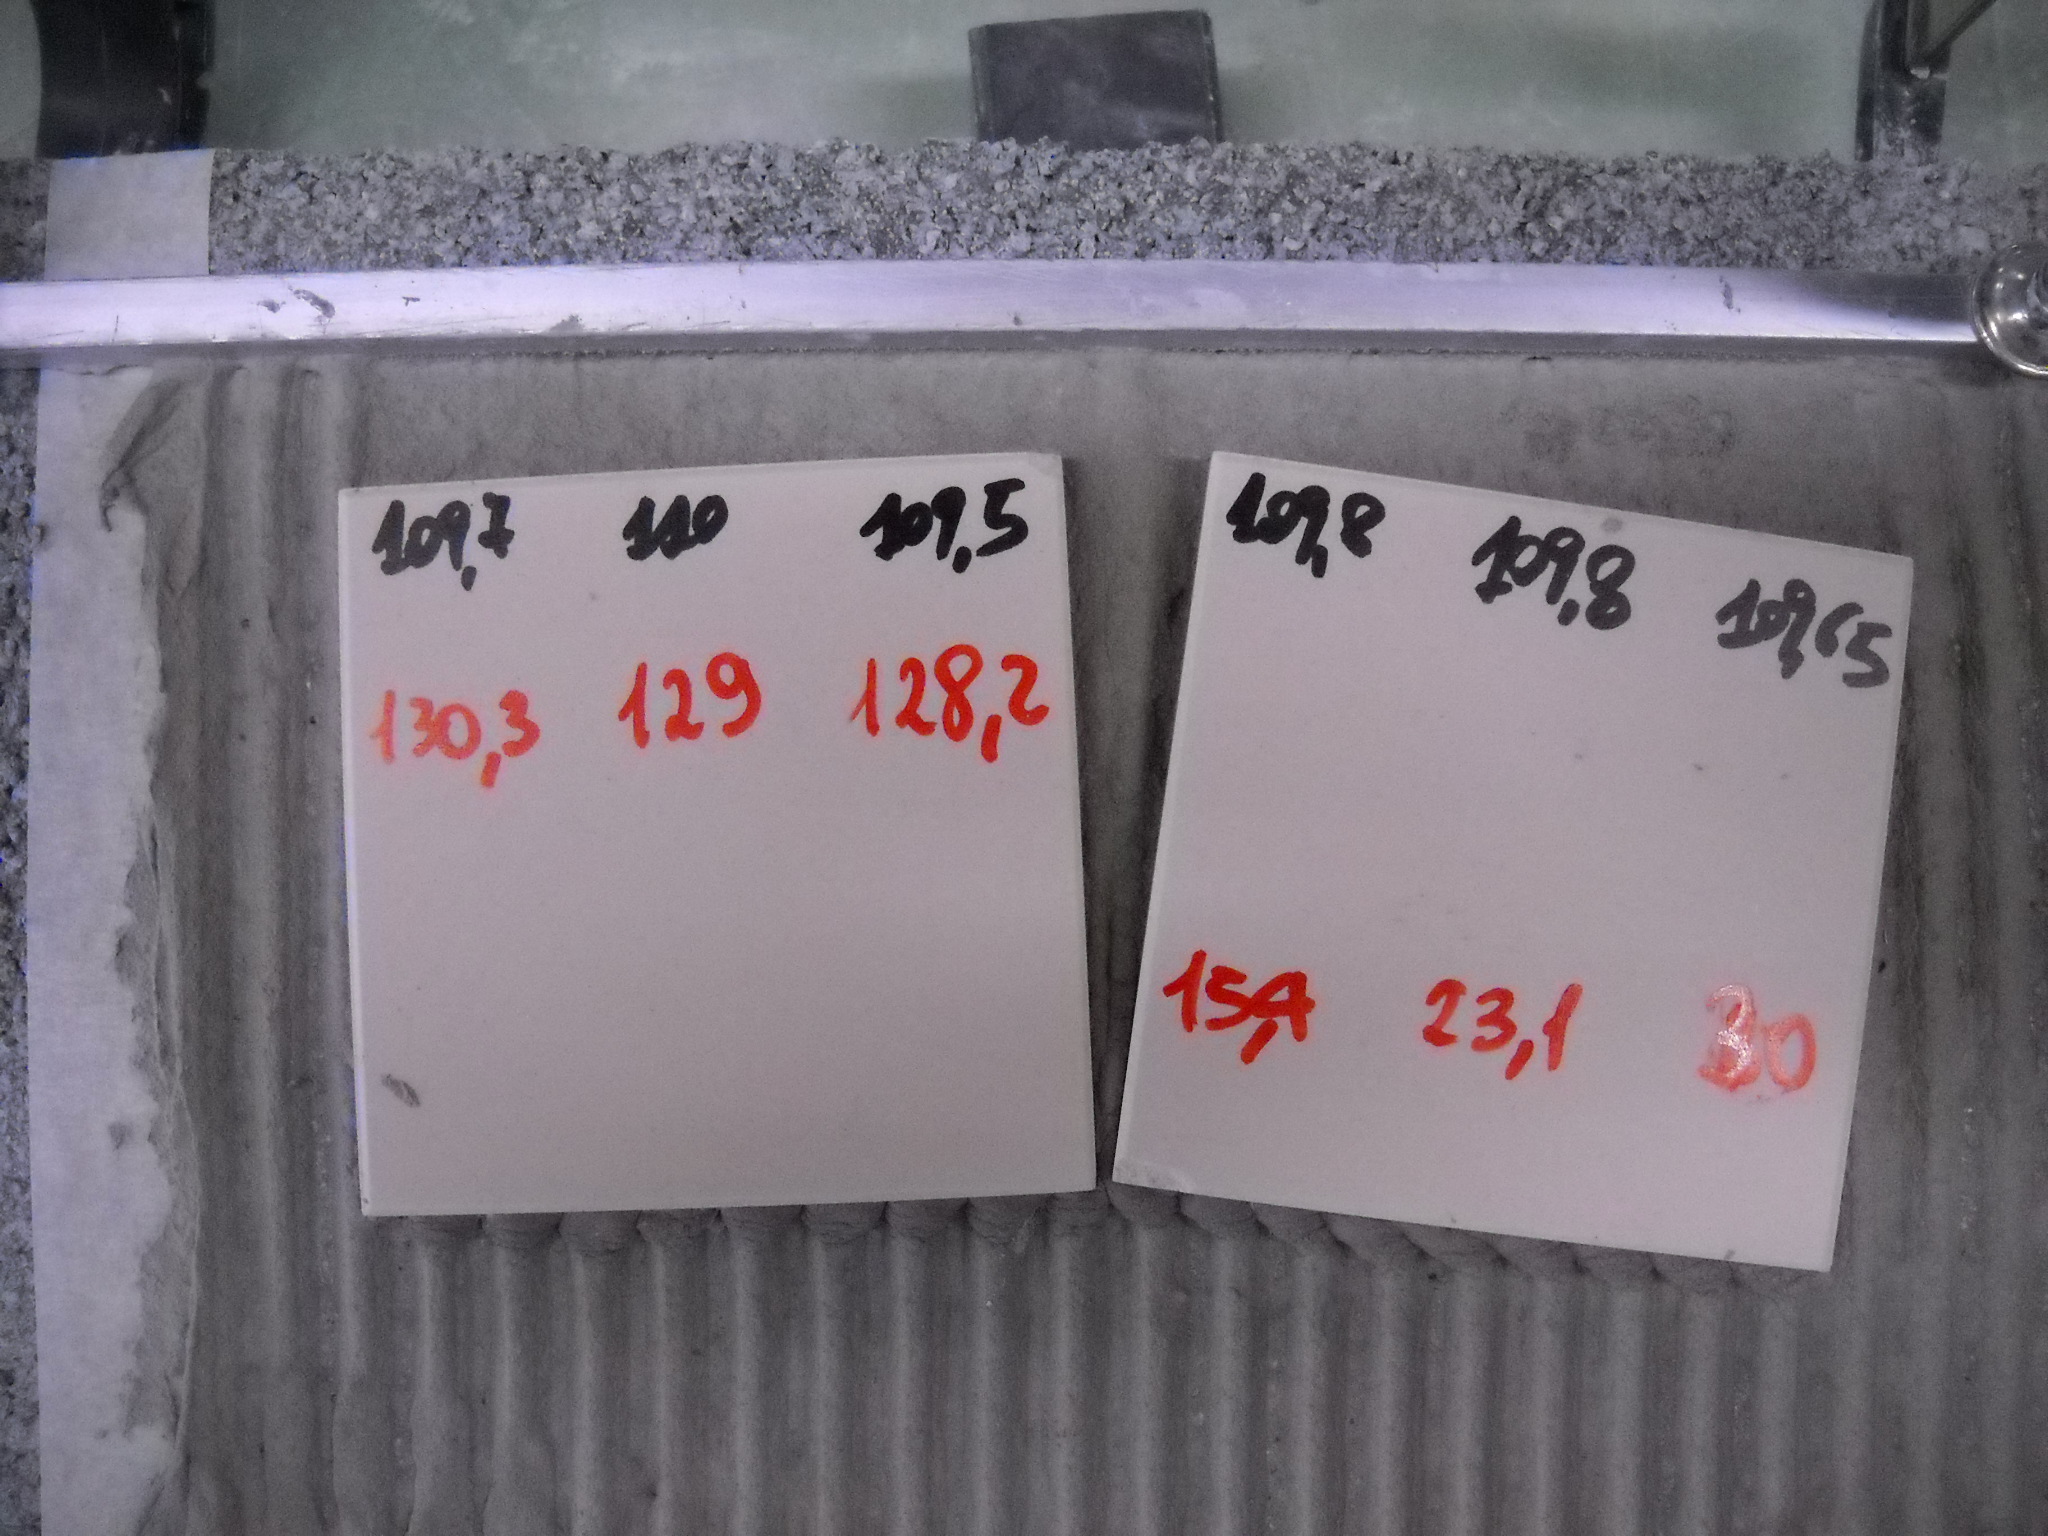 109,7 110 109,5
130,3 129 128,2
109,8 109,8 109,65
15,4 23,1 30